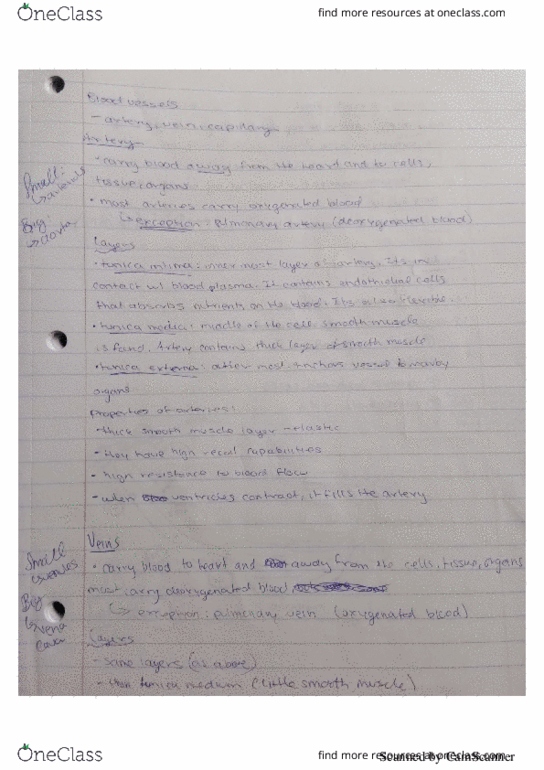 OneClass
find more resources at oneclass.com
Blood vessels
- artery, vein, capillary
Artery
- carry blood away from the heart and to cells,
tissue, organs
Small:
↳ arterioles
• most arteries carry oxygenated blood
Big:
↳ aorta
↳ exception: pulmonary artery (deoxygenated blood)
Layers
• tunica intima: inner most layer of artery. Its in
contact w/ blood plasma. It contains endothelial cells
that absorbs nutrients on the blood. Its
• tunica media: middle of the cell. smooth muscle
is found. Artery contains thick layer of smooth muscle
• tunica externa: outer most. Anchors vessel to nearby
organs
Properties of arteries:
- thick smooth muscle layer - elastic
- they have high recoil capabilities
- high resistance to blood flow
- when ventricles contract, it fills the artery
Veins
Small
venules
• carry blood to heart and away from the cells, tissue, organs
Big
↳ vena
cava
most carry deoxygenated blood
↳ exception: pulmonary vein (oxygenated blood)
Layers
- same layers (as above)
- thin tunica medium (little smooth muscle)
OneClass
find more resources at oneclass.com
Scanned by CamScanner